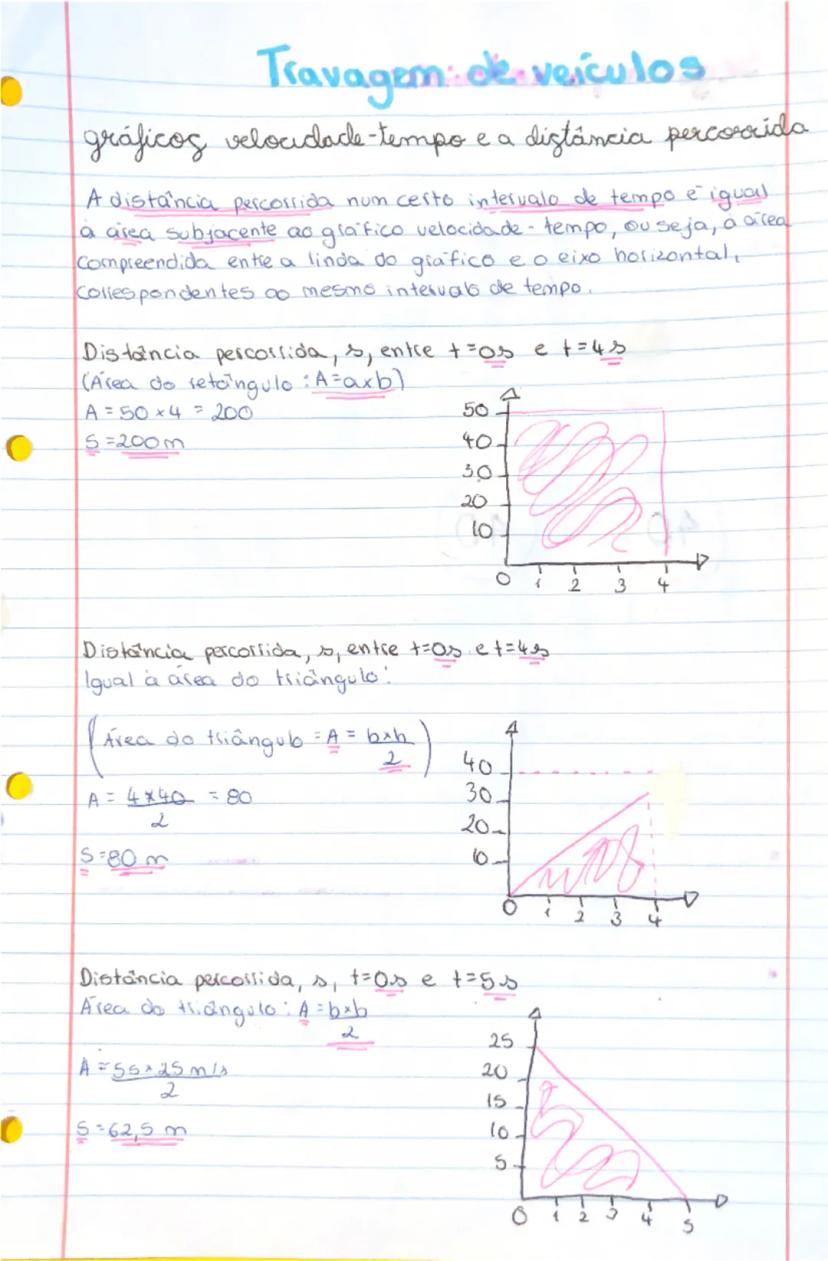 Travagem de veículos
gráficos velocidade-tempo e a distância percorrida
A distância percorrida num certo intervalo de tempo é igual
à área subjacente ao gráfico velocidade-tempo, ou seja, à área
compreendida entre a linda do gráfico e o eixo horizontal,
correspondentes ao mesmo intervalo de tempo.
Distância percorrida, s, entre t=0s e t=4s
(Área do retângulo: A=axb)
A = 50 x 4 = 200
S = 200 m
50
40
30
20
10
0 1 2 3 4
Distância percorrida, s, entre t=0s e t=4s
Igual à área do triângulo:
(Área do triângulo = A = bxh/2)
A = 4x40/2 = 80
S = 80 m
40
30
20
10
0 1 2 3 4
Distância percorrida, s, t=0s e t=5s
Área do triângulo: A = bxh/2
A = 5s x 25 m/s/2
S = 62,5 m
25
20
15
10
5
0 1 2 3 4 5